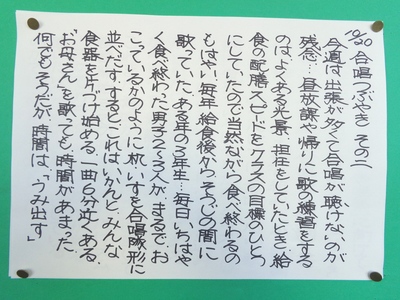 10/20 合唱つぶやき その二
今週は出張が多くて合唱が聴けないのが
残念…昼放課や帰りに歌の練習をする
のはよくある光景、担任をしていたとき、給
食の配膳スピードをクラスの目標のひとつ
にしていたので当然ながら食べ終わるの
もはやい。毎年給食後からそうじの間に
歌っていた。ある年の3年生…毎日いちはや
く食べ終わった男子2〜3人が、まるでお
こっているかのように机、いすを合唱隊形に
並べだす。するとこれはいかんと、みんな
食器を片づけ始める。一曲6分近くある、
“お母さん”を歌っても、時間があまった。
何でもそうだが、時間は、「うみ出す」